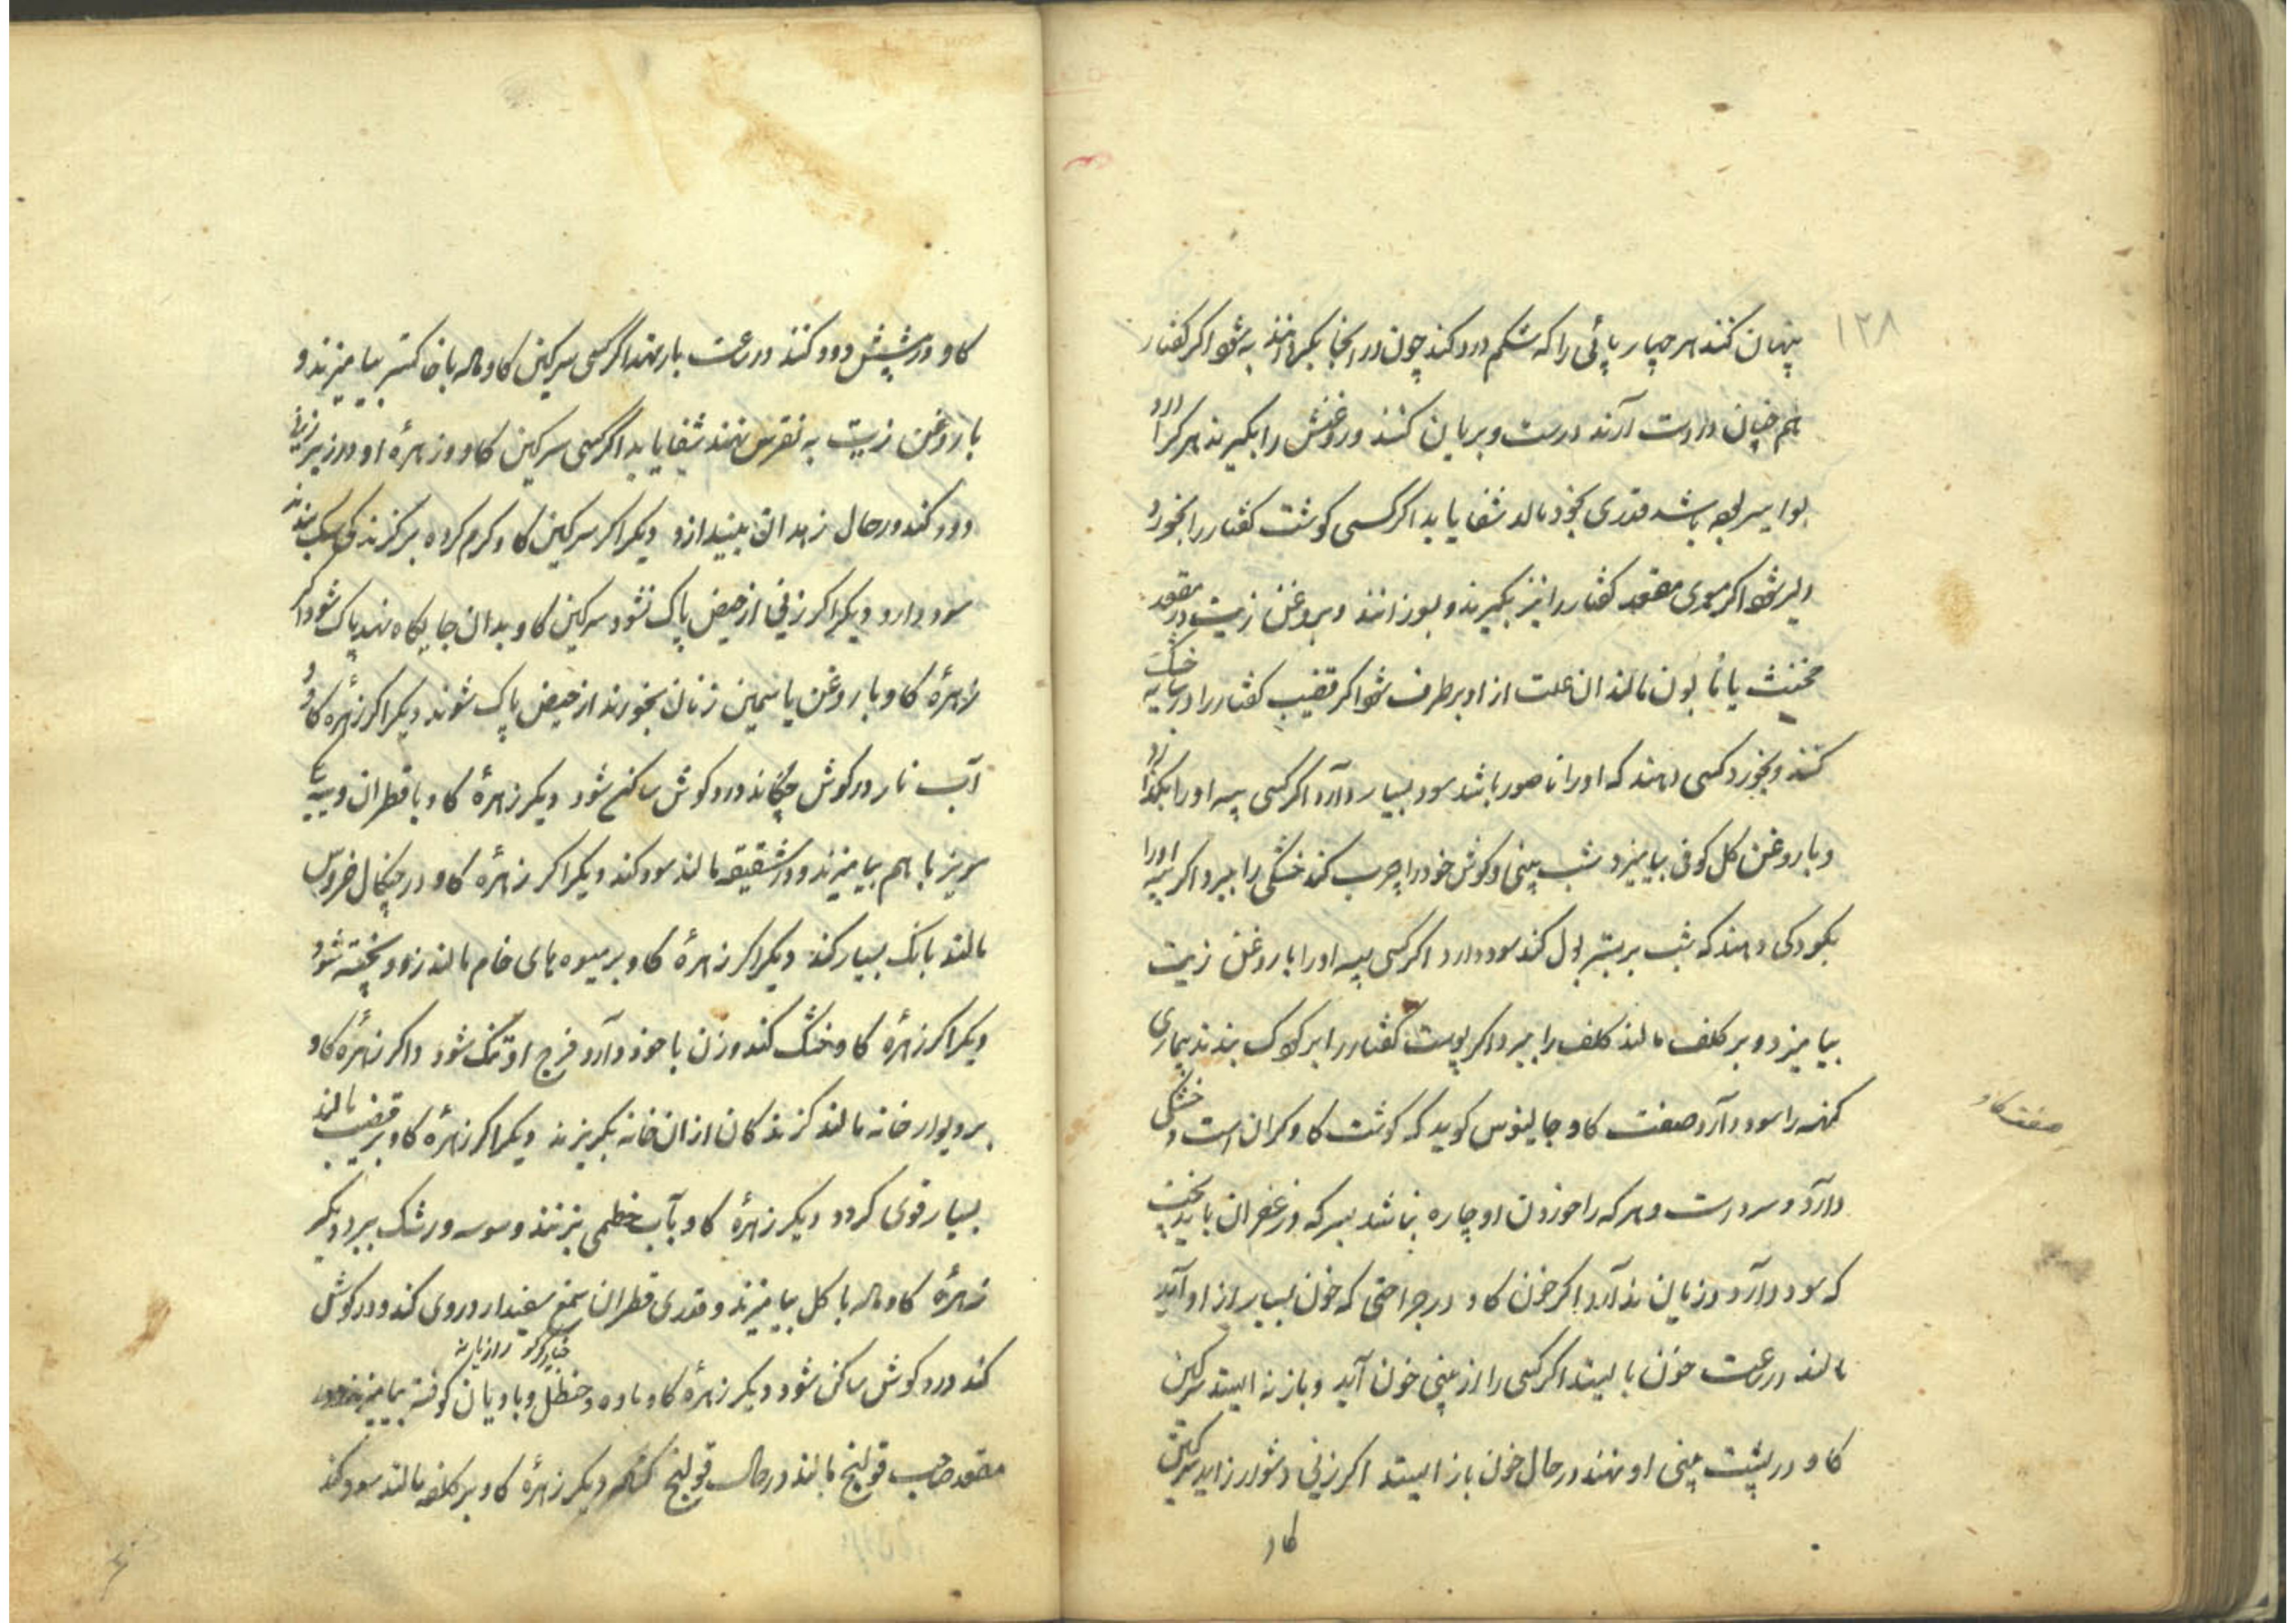 ۱۲۸
پنهان کنند هر چهار پائی را که شکم درد کند چون در انجا بگردانند به شود اکر کفتار
هم چنان درست آرند درست و بریان کنند و روغنش را بگیرند هر کرا درد
بواسیر بوده باشد قدری بخود بمالد شفا یابد اکر کسی کوشت کفتار را بخورد
دلیر شود اکر موی مقعد کفتار را نیز بگیرند و بسوزانند و بروغن زیت در مقعد
مخنث یا مأبون مالند ان علت از او برطرف شود اکر قضیب کفتار را در سایه خشک
کنند و بخورد کسی دهند که او را ناصور باشد سود بسیار دارد اکر کسی پیه او را بکدازد
و با روغن کل کوفی بیامیزد شب بینی و کوش خود را چرب کند خشکی را ببرد و اکر پیه او را
بکودکی دهند که شب بر بستر بول کند سود دارد اکر کسی پیه او را با روغن زیت
بیامیزد و بر کلف مالند کلف را ببرد اکر پوست کفتار را بر کودک بندند بیماری
کهنه را سود دارد صفت کاو جالینوس کوید که کوشت کاو کران است و خشکی
دارد و سردست و هر که را خوردن او چاره نباشد بسرکه و زعفران باید پخت
که سود دارد و زیان ندارد اکر خون کاو در جراحتی که خون بسیار از او آید
مالند در ساعت خون بایستد اکر کسی را از بینی خون آید و باز نه ایستد سرکین
کاو در پشت بینی او نهند در حال خون باز ایستد اکر زنی دشوار زاید سرکین
کاو
صفت کاو
کاو در پیشش دود کنند در ساعت بار نهد اکر کسی سرکین کاو ماله با خاکستر بیامیزند و
با روغن زیت به نقرس نهند شفا یابد اکر کسی سرکین کاو و زهرهٔ او در زیر زنی
دود کند در حال زهدان بیندازد دیکر اکر سرکین کاو کرم کرده بر کزندکی سک بندند
سود دارد دیکر اکر زنی از حیض پاک نشود سرکین کاو بدان جایکاه نهد پاک شود اکر
زهرهٔ کاو با روغن یاسمین زنان بخورند از حیض پاک شوند دیکر اکر زهره کاو و
آب نار در کوش چکانند درد کوش ساکن شود دیکر زهرهٔ کاو با قطران و پیه
بز با هم بیامیزند و در شقیقه مالند سود کند دیکر اکر زهرهٔ کاو در چنکال خروس
مالند بانک بسیار کند دیکر اکر زهرهٔ کاو بر میوه های خام مالند زود پخته شود
دیکر اکر زهرهٔ کاو خشک کند و زن با خود دارد فرج او تنک شود و اکر زهرهٔ کاو
بر دیوار خانه مالند کزندکان از ان خانه بگریزند دیکر اکر زهرهٔ کاو بر قضیب مالند
بسیار قوی کردد دیکر زهرهٔ کاو بآب خطمی بزنند وسوسه و رشک ببرد دیکر
زهرهٔ کاو ماله با کل بیامیزند و قدری قطران صمغ سفیدار در وی کند و در کوش
کند درد کوش ساکن شود دیکر زهرهٔ کاو ماده و حنظل و بادیان کوفته بیامیزند و در
رازیانه
مقعد صاحب قولنج مالند در حال قولنج دیکر زهرهٔ کاو بر کلفه مالند سود کند